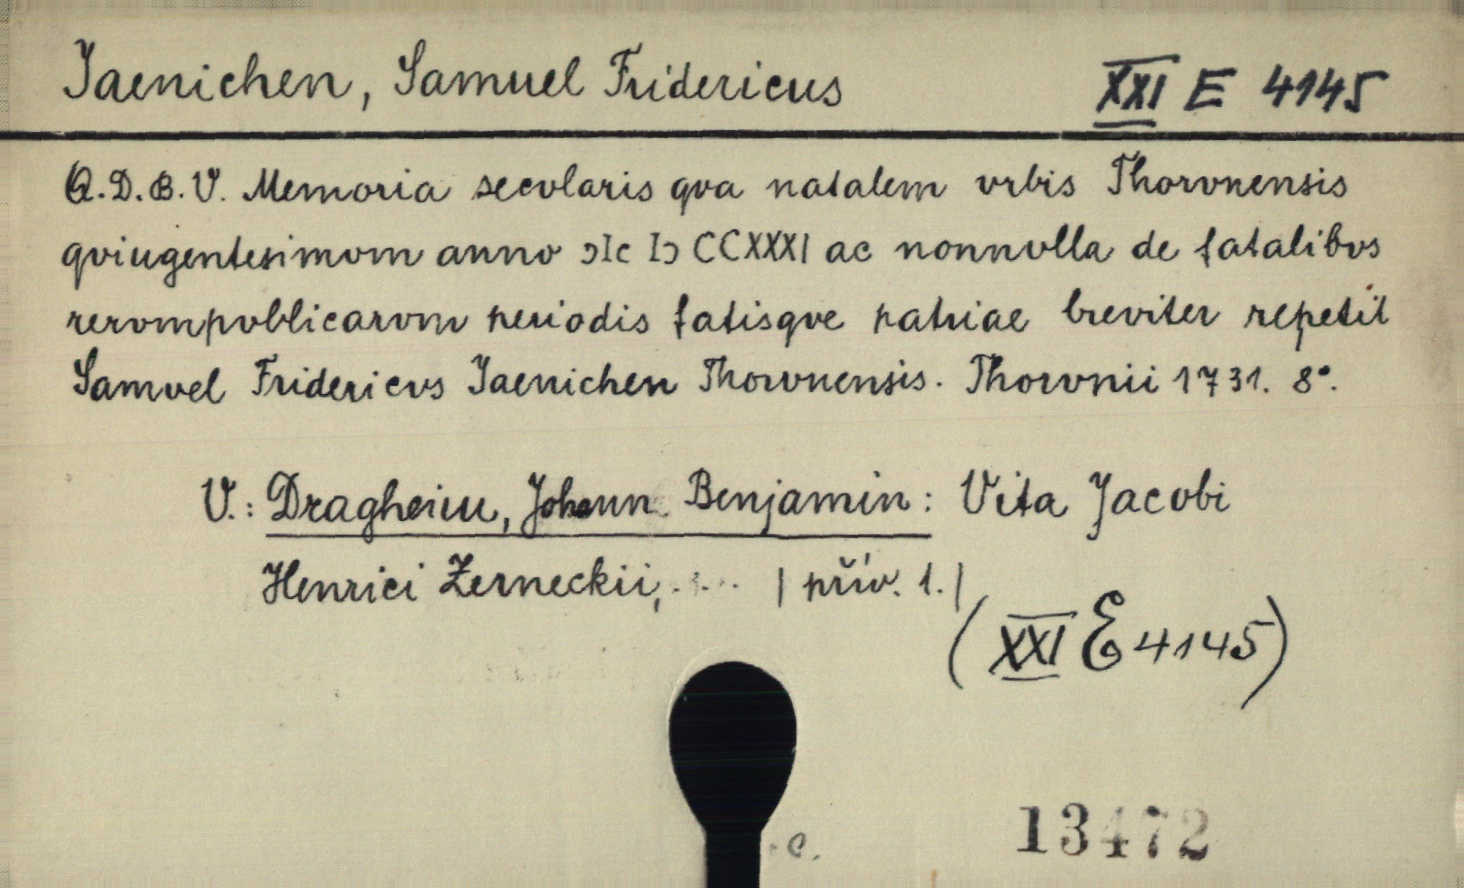 Jaenichen, Samuel Fridericus XXI E 4145
Q.D.B.V. Memoria secvlaris qva natalem vrbis Thorvnensis
qviugentesimvm anno ɔIc Iɔ CCXXXI ac nonnvlla de fatalibvs
rervmpvblicarvm periodis fatisqve patriae breviter repetit
Samvel Fridericvs Jaenichen Thorvnensis. Thorvnii 1731. 8°.
V.: Dragheim, Johann Benjamin: Vita Jacobi
Henrici Zerneckii, .... | přív. 1.|
(XXI E 4145)
c.
13472